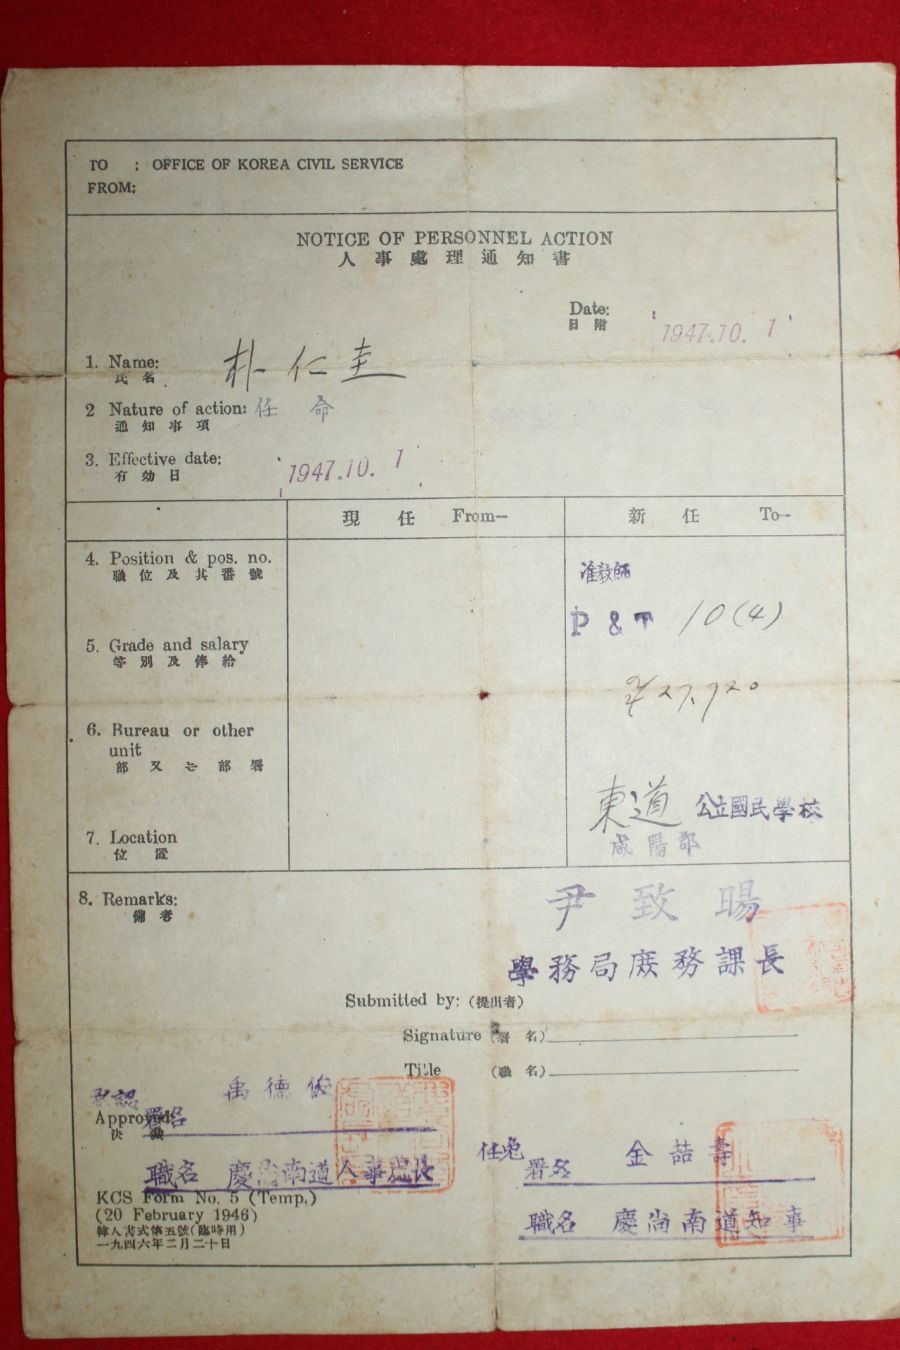 TO : OFFICE OF KOREA CIVIL SERVICE
FROM:
NOTICE OF PERSONNEL ACTION
人事處理通知書
Date: 1947.10. 1
日附
1. Name: 朴仁圭
氏名
2 Nature of action: 任命
通知事項
3. Effective date: 1947.10. 1
有効日
現任 From--
新任 To--
4. Position & pos. no.
職位及其番號
准敎師
P & T 10(4)
5. Grade and salary
等別及俸給
¥27,720
6. Bureau or other
unit
部又는部署
東道 公立國民學校
7. Location
位置
咸陽郡
8. Remarks:
備考
尹致暘
學務局庶務課長
Submitted by: (提出者)
Signature (署名)
Title (職名)
承認
署名 禹德俊
Approved:
決裁
職名 慶尙南道人事處長
任免
署名 金喆壽
職名 慶尙南道知事
KCS Form No. 5 (Temp.)
(20 February 1946)
韓人書式第五號(臨時用)
一九四六年二月二十日